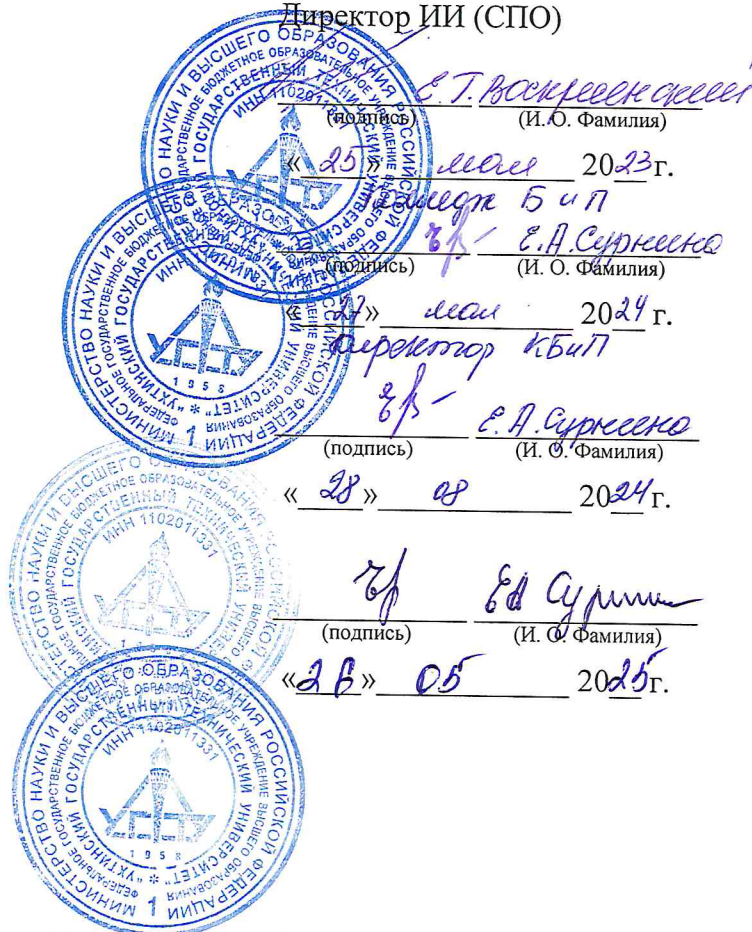 Директор ИИ (СПО)
Е. Т. Воскресенский
(подпись) (И. О. Фамилия)
« 25 » мая 2023 г.
БиП
Е. А. Сурнина
(подпись) (И. О. Фамилия)
« 27 » мая 2024 г.
Директор КБиП
Е. А. Сурнина
(подпись) (И. О. Фамилия)
« 28 » 08 2024 г.
ЕА Сурнина
(подпись) (И. О. Фамилия)
« 26 » 05 2025 г.
МИНИСТЕРСТВО НАУКИ И ВЫСШЕГО ОБРАЗОВАНИЯ РОССИЙСКОЙ ФЕДЕРАЦИИ
ФЕДЕРАЛЬНОЕ ГОСУДАРСТВЕННОЕ БЮДЖЕТНОЕ ОБРАЗОВАТЕЛЬНОЕ УЧРЕЖДЕНИЕ ВЫСШЕГО ОБРАЗОВАНИЯ
"УХТИНСКИЙ ГОСУДАРСТВЕННЫЙ ТЕХНИЧЕСКИЙ УНИВЕРСИТЕТ"
ИНН 1102011331
УГТУ
1958
1